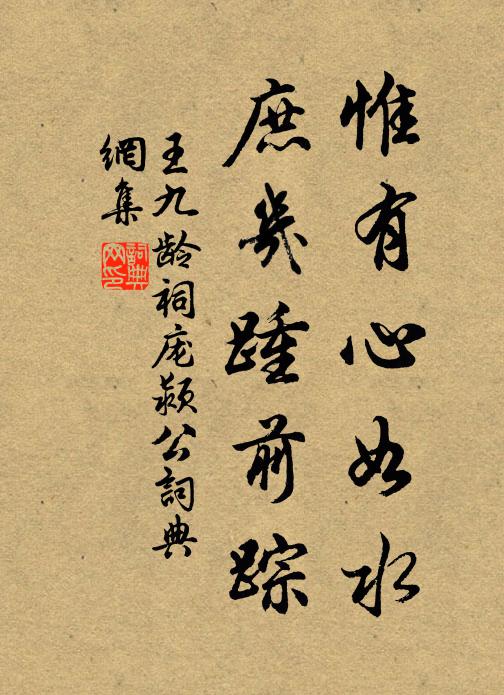 惟有心如水
庶幾踵前踪
王九龄祠庞颍公詞典
網集
詞典網印